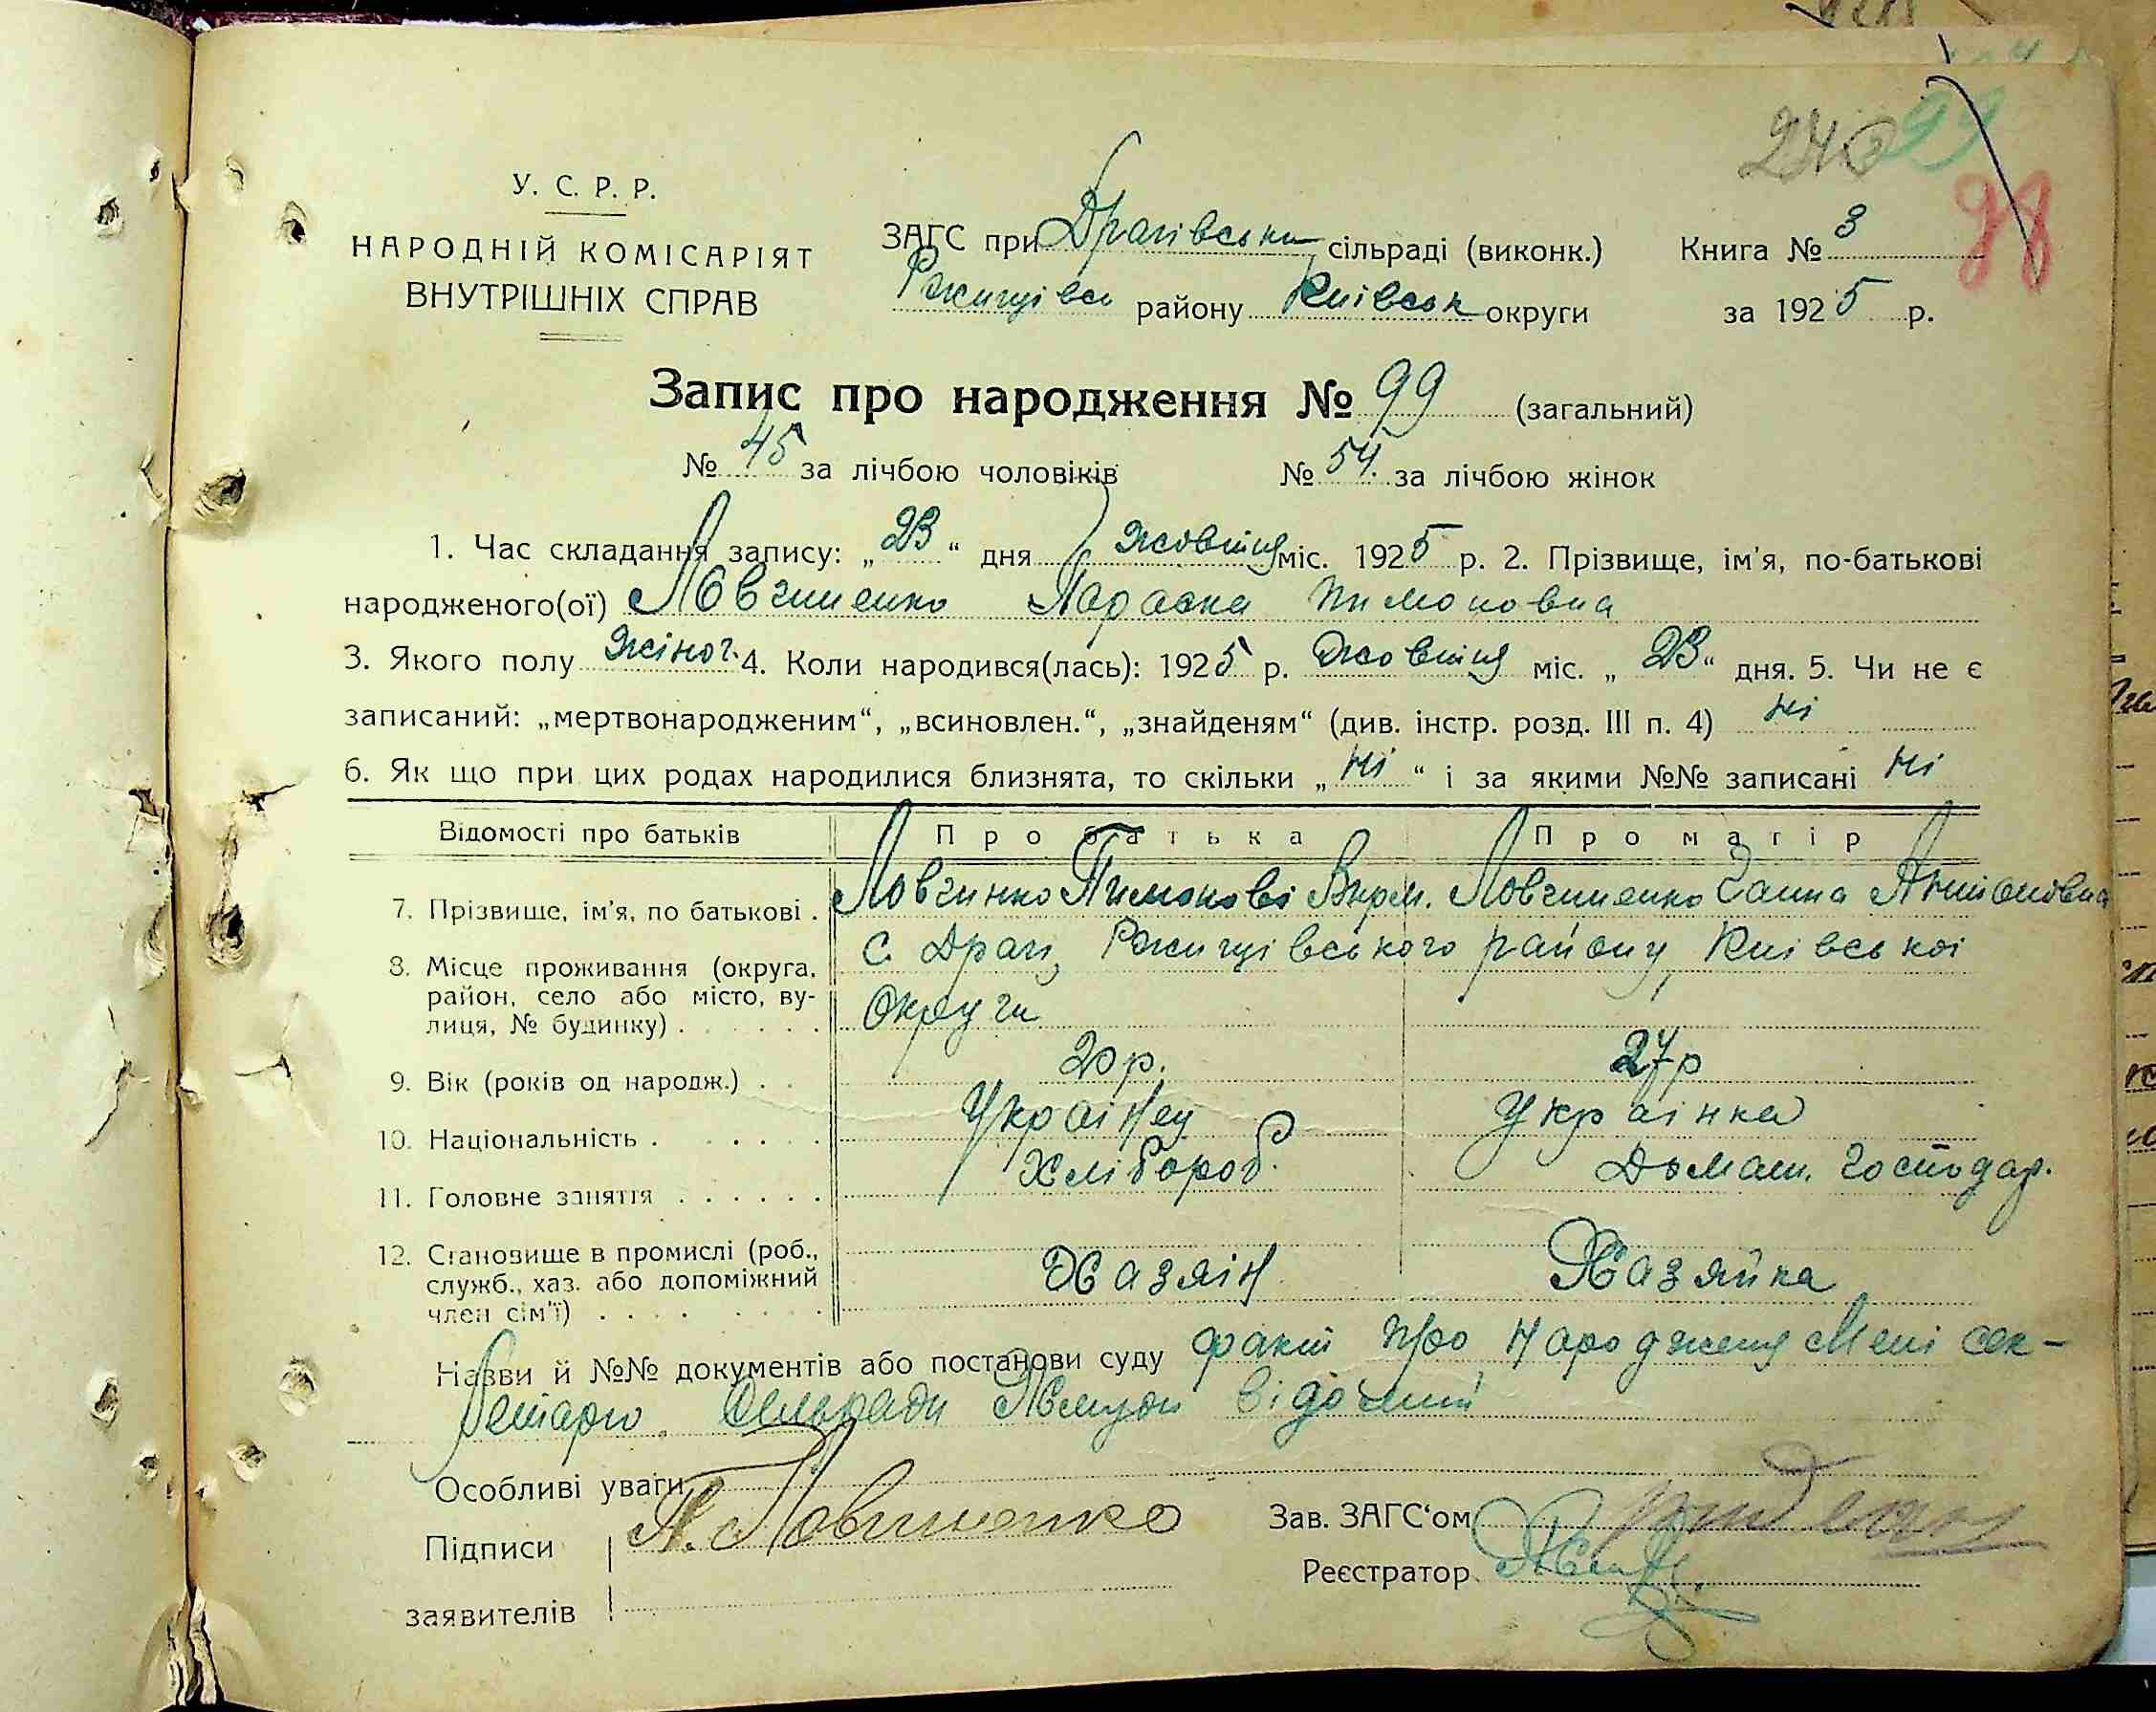 240 99
98
У. С. Р. Р.
НАРОДНІЙ КОМІСАРІЯТ
ВНУТРІШНІХ СПРАВ
ЗАГС при Драгівські сільраді (виконк.) Книга № 3
Ржищівсь району Київськ округи за 1925 р.
Запис про народження № 99 (загальний)
№ 45 за лічбою чоловіків № 54. за лічбою жінок
1. Час складання запису: „23“ дня жовтня міс. 1925 р. 2. Прізвище, ім'я, по-батькові
народженого(ої) Ловчиненко Параска Тимоновна
3. Якого полу жіноч. 4. Коли народився(лась): 1925 р. Жовтня міс. „23“ дня. 5. Чи не є
записаний: „мертвонародженим“, „всиновлен.“, „знайденям“ (див. інстр. розд. III п. 4) ні
6. Як що при цих родах народилися близнята, то скільки „ні“ і за якими №№ записані ні
Відомості про батьків Про батька Про матір
7. Прізвище, ім'я, по батькові . Ловчинко Ловчиненко Ганна Антоновна
8. Місце проживання (округа, район, село або місто, ву-лиця, № будинку) . . . . . . с. Драги, Ржищівського району, Київськоі
Округи
9. Вік (років од народж.) . . 20 р. 27 р
10. Національність . . . . . . Украінец Украінка
11. Головне заняття . . . . . . Хлібороб. Домаш. господар.
12. Становище в промислі (роб., служб., хаз. або допоміжний член сім'ї) . . . . . . Хазяін Хазяйка
Назви й №№ документів або постанови суду факт про народженя Мені сек-
ретарю Сельради відомий
Особливі уваги
Підписи Ловчиненко Зав. ЗАГС‘ом
Реєстратор
заявителів